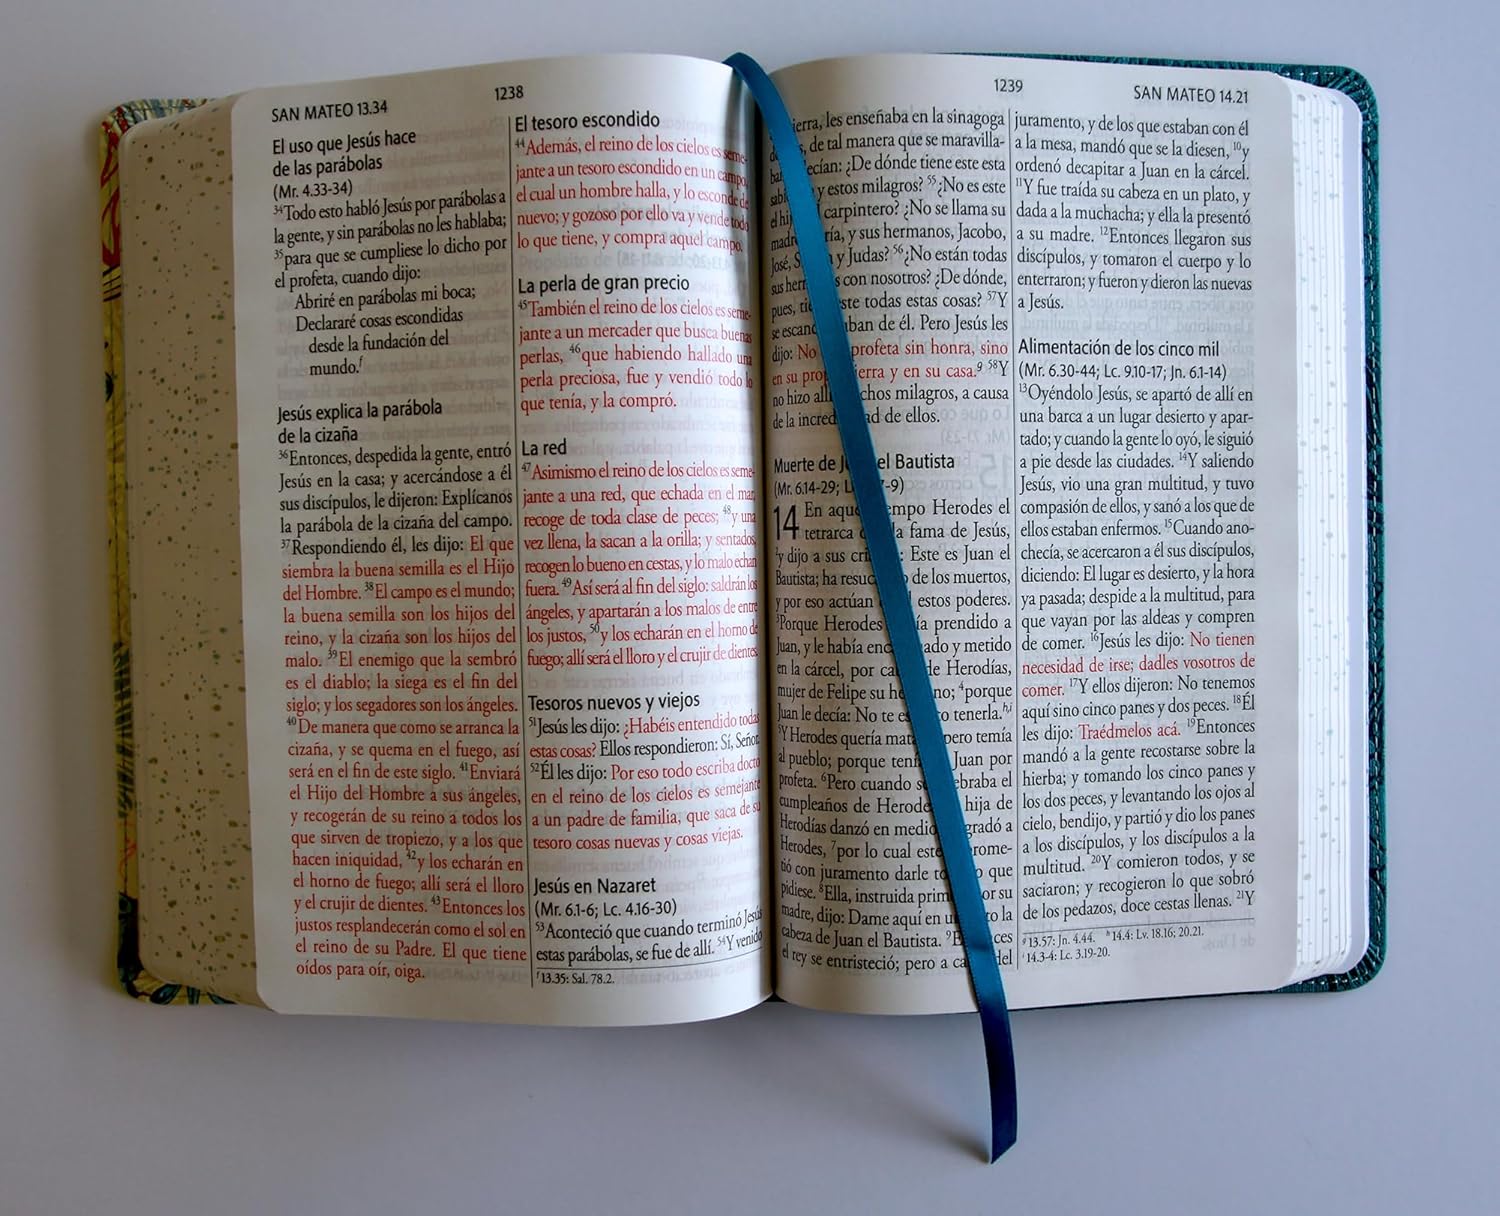 SAN MATEO 13.34
1238
El uso que Jesús hace
de las parábolas
(Mr. 4.33-34)
34Todo esto habló Jesús por parábolas a
la gente, y sin parábolas no les hablaba;
35para que se cumpliese lo dicho por
el profeta, cuando dijo:
Abriré en parábolas mi boca;
Declararé cosas escondidas
desde la fundación del
mundo.f
Jesús explica la parábola
de la cizaña
36Entonces, despedida la gente, entró
Jesús en la casa; y acercándose a él
sus discípulos, le dijeron: Explícanos
la parábola de la cizaña del campo.
37Respondiendo él, les dijo: El que
siembra la buena semilla es el Hijo
del Hombre. 38El campo es el mundo;
la buena semilla son los hijos del
reino, y la cizaña son los hijos del
malo. 39El enemigo que la sembró
es el diablo; la siega es el fin del
siglo; y los segadores son los ángeles.
40De manera que como se arranca la
cizaña, y se quema en el fuego, así
será en el fin de este siglo. 41Enviará
el Hijo del Hombre a sus ángeles,
y recogerán de su reino a todos los
que sirven de tropiezo, y a los que
hacen iniquidad, 42y los echarán en
el horno de fuego; allí será el lloro
y el crujir de dientes. 43Entonces los
justos resplandecerán como el sol en
el reino de su Padre. El que tiene
oídos para oír, oiga.
El tesoro escondido
44Además, el reino de los cielos es seme-
jante a un tesoro escondido en un campo,
el cual un hombre halla, y lo esconde de
nuevo; y gozoso por ello va y vende todo
lo que tiene, y compra aquel campo.
La perla de gran precio
45También el reino de los cielos es seme-
jante a un mercader que busca buenas
perlas, 46que habiendo hallado una
perla preciosa, fue y vendió todo lo
que tenía, y la compró.
La red
47Asimismo el reino de los cielos es seme-
jante a una red, que echada en el mar,
recoge de toda clase de peces; 48y una
vez llena, la sacan a la orilla; y sentados,
recogen lo bueno en cestas, y lo malo echan
fuera. 49Así será al fin del siglo: saldrán los
ángeles, y apartarán a los malos de entre
los justos, 50y los echarán en el horno de
fuego; allí será el lloro y el crujir de dientes.
Tesoros nuevos y viejos
51Jesús les dijo: ¿Habéis entendido todas
estas cosas? Ellos respondieron: Sí, Señor.
52Él les dijo: Por eso todo escriba docto
en el reino de los cielos es semejante
a un padre de familia, que saca de su
tesoro cosas nuevas y cosas viejas.
Jesús en Nazaret
(Mr. 6.1-6; Lc. 4.16-30)
53Aconteció que cuando terminó Jesús
estas parábolas, se fue de allí. 54Y venido
f 13.35: Sal. 78.2.
1239
SAN MATEO 14.21
tierra, les enseñaba en la sinagoga
de tal manera que se maravilla-
decían: ¿De dónde tiene este esta
y estos milagros? 55¿No es este
el carpintero? ¿No se llama su
y sus hermanos, Jacobo,
José, y Judas? 56¿No están todas
sus con nosotros? ¿De dónde,
pues, este todas estas cosas? 57Y
se de él. Pero Jesús les
dijo: No profeta sin honra, sino
en su tierra y en su casa.g 58Y
no hizo allí milagros, a causa
de la de ellos.
Muerte de el Bautista
(Mr. 6.14-29;
14 En Herodes el
tetrarca la fama de Jesús,
2y dijo a sus Este es Juan el
Bautista; ha de los muertos,
y por eso actúan estos poderes.
3Porque Herodes prendido a
Juan, y le había y metido
en la cárcel, por de Herodías,
mujer de Felipe su 4porque
Juan le decía: No te tenerla.h,i
5Y Herodes quería pero temía
al pueblo; porque Juan por
profeta. 6Pero cuando el
cumpleaños de hija de
Herodías danzó en medio, agradó a
Herodes, 7por lo cual este
tió con juramento darle que
pidiese. 8Ella, instruida por su
madre, dijo: Dame aquí en la
cabeza de Juan el Bautista. 9
el rey se entristeció; pero a del
juramento, y de los que estaban con él
a la mesa, mandó que se la diesen, 10y
ordenó decapitar a Juan en la cárcel.
11Y fue traída su cabeza en un plato, y
dada a la muchacha; y ella la presentó
a su madre. 12Entonces llegaron sus
discípulos, y tomaron el cuerpo y lo
enterraron; y fueron y dieron las nuevas
a Jesús.
Alimentación de los cinco mil
(Mr. 6.30-44; Lc. 9.10-17; Jn. 6.1-14)
13Oyéndolo Jesús, se apartó de allí en
una barca a un lugar desierto y apar-
tado; y cuando la gente lo oyó, le siguió
a pie desde las ciudades. 14Y saliendo
Jesús, vio una gran multitud, y tuvo
compasión de ellos, y sanó a los que de
ellos estaban enfermos. 15Cuando ano-
checía, se acercaron a él sus discípulos,
diciendo: El lugar es desierto, y la hora
ya pasada; despide a la multitud, para
que vayan por las aldeas y compren
de comer. 16Jesús les dijo: No tienen
necesidad de irse; dadles vosotros de
comer. 17Y ellos dijeron: No tenemos
aquí sino cinco panes y dos peces. 18Él
les dijo: Traédmelos acá. 19Entonces
mandó a la gente recostarse sobre la
hierba; y tomando los cinco panes y
los dos peces, y levantando los ojos al
cielo, bendijo, y partió y dio los panes
a los discípulos, y los discípulos a la
multitud. 20Y comieron todos, y se
saciaron; y recogieron lo que sobró
de los pedazos, doce cestas llenas. 21Y
g 13.57: Jn. 4.44. h 14.4: Lv. 18.16; 20.21.
i 14.3-4: Lc. 3.19-20.